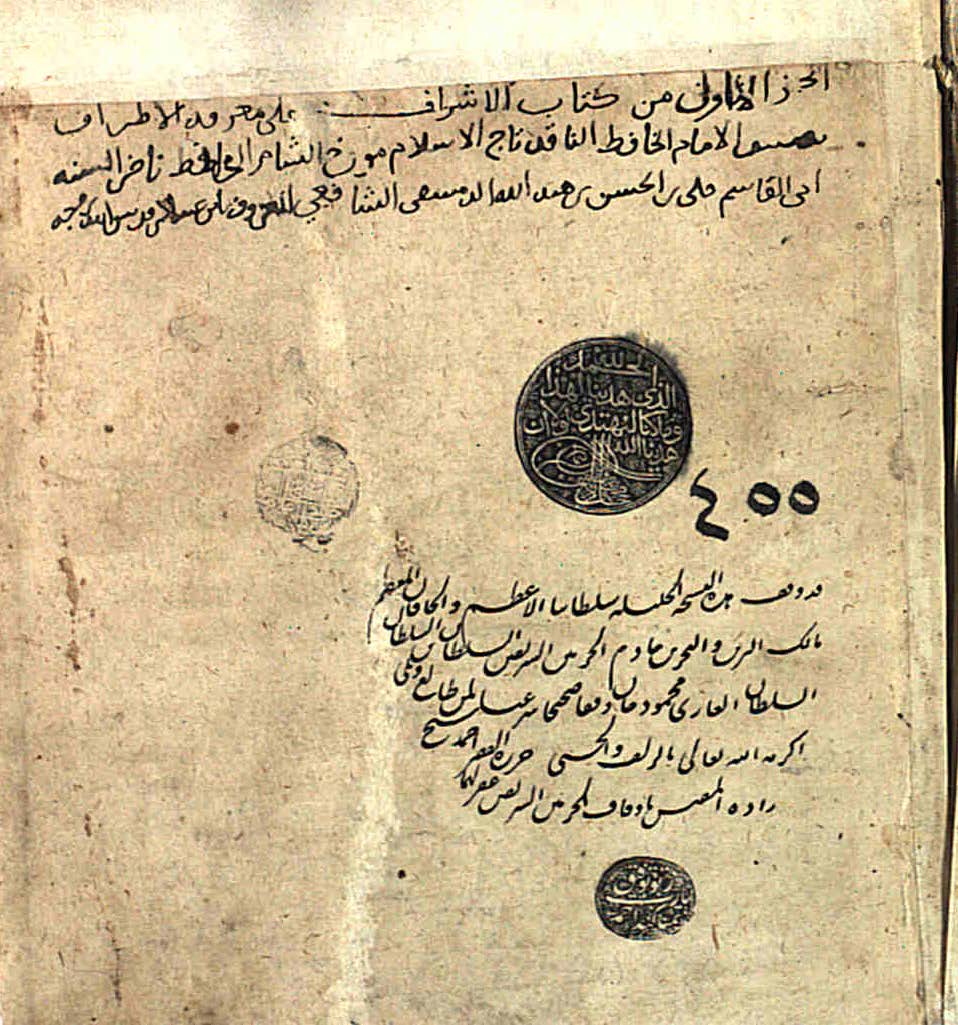 الجزء الأول من كتاب الاشراف على معرفة الاطراف
تصنيف الامام الحافظ الناقد تاج الاسلام مورخ الشام الحافظ ناصر السنه
ابى القاسم على بن الحسن بن هبة الله الدمشقى الشافعي المعروف بابن عساكر قدس الله روحه
الحمد لله
الذى هدينا لهذا
وما كنا لنهتدى لولا ان
هدينا الله
٤٥٥
قد وقف هذه النسخه الجليله سلطاننا الاعظم والخاقان المعظم
مالك البرين والبحرين خادم الحرمين الشريفين السلطان بن السلطان
السلطان الغازى محمود خان وقفا صحيحا شرعيا لمن طالع
اكرمه الله تعالى بالزلفى والحسنى حرره الفقير احمد شيخ
زاده المفتش باوقاف الحرمين الشريفين غفر لهما